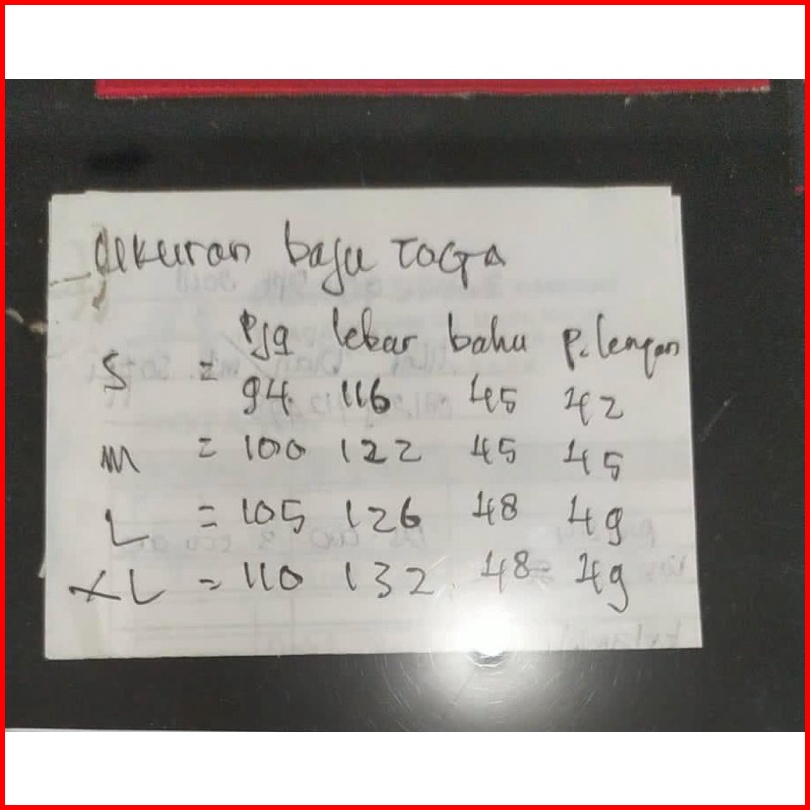 Ukuran baju TOGA
Pjg lebar bahu p. lengan
S = 94 116 45 42
M = 100 122 45 45
L = 105 126 48 49
XL = 110 132 48 49